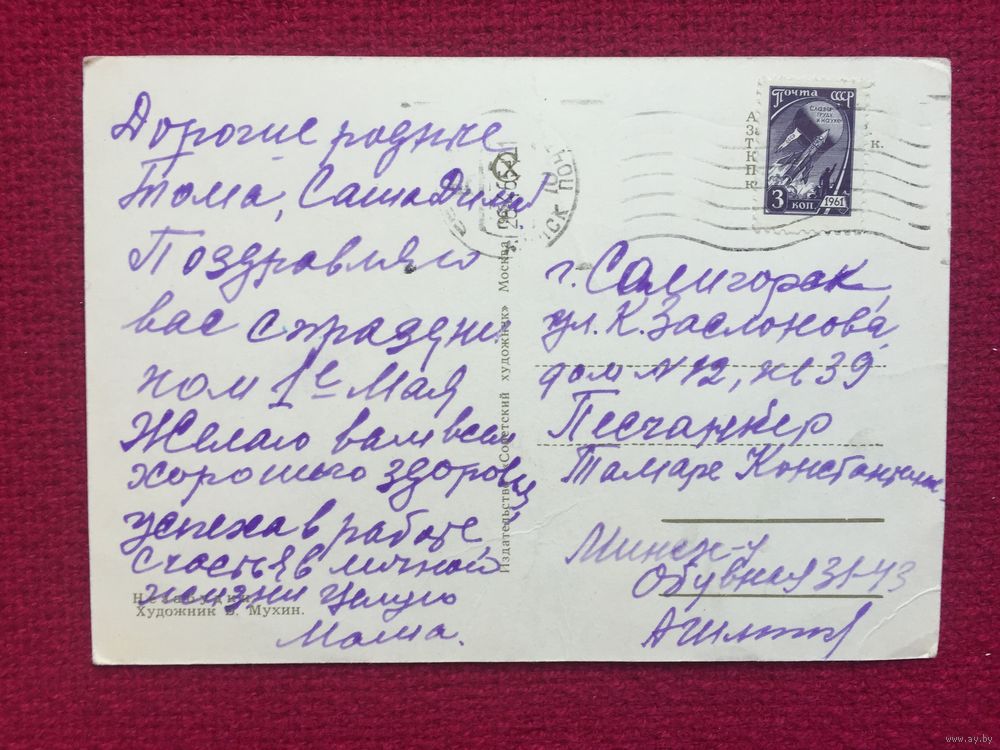 Дорогие родные
Тома, Саша Дима!
Поздравляю
вас с праздни
ком 1е Мая
Желаю вам всем
хорошего здоровья
успеха в работе
счастья в личной
жизни Целую
Мама.
Незабудки.
Художник В. Мухин.
Издательство «Советский художник» Москва
ПОЧТА СССР
СЛАВА
ТРУДУ
И НАУКЕ
3 КОП. 1961
МИНСК ПОЧТ
А
За
Т
К
П
к
к.
г. Солигорск,
ул. К. Заслонова,
дом № 12, кв 39
Песчанкер
Тамаре Константиновне
Минск-4
Обувная 31-43
www.ay.by